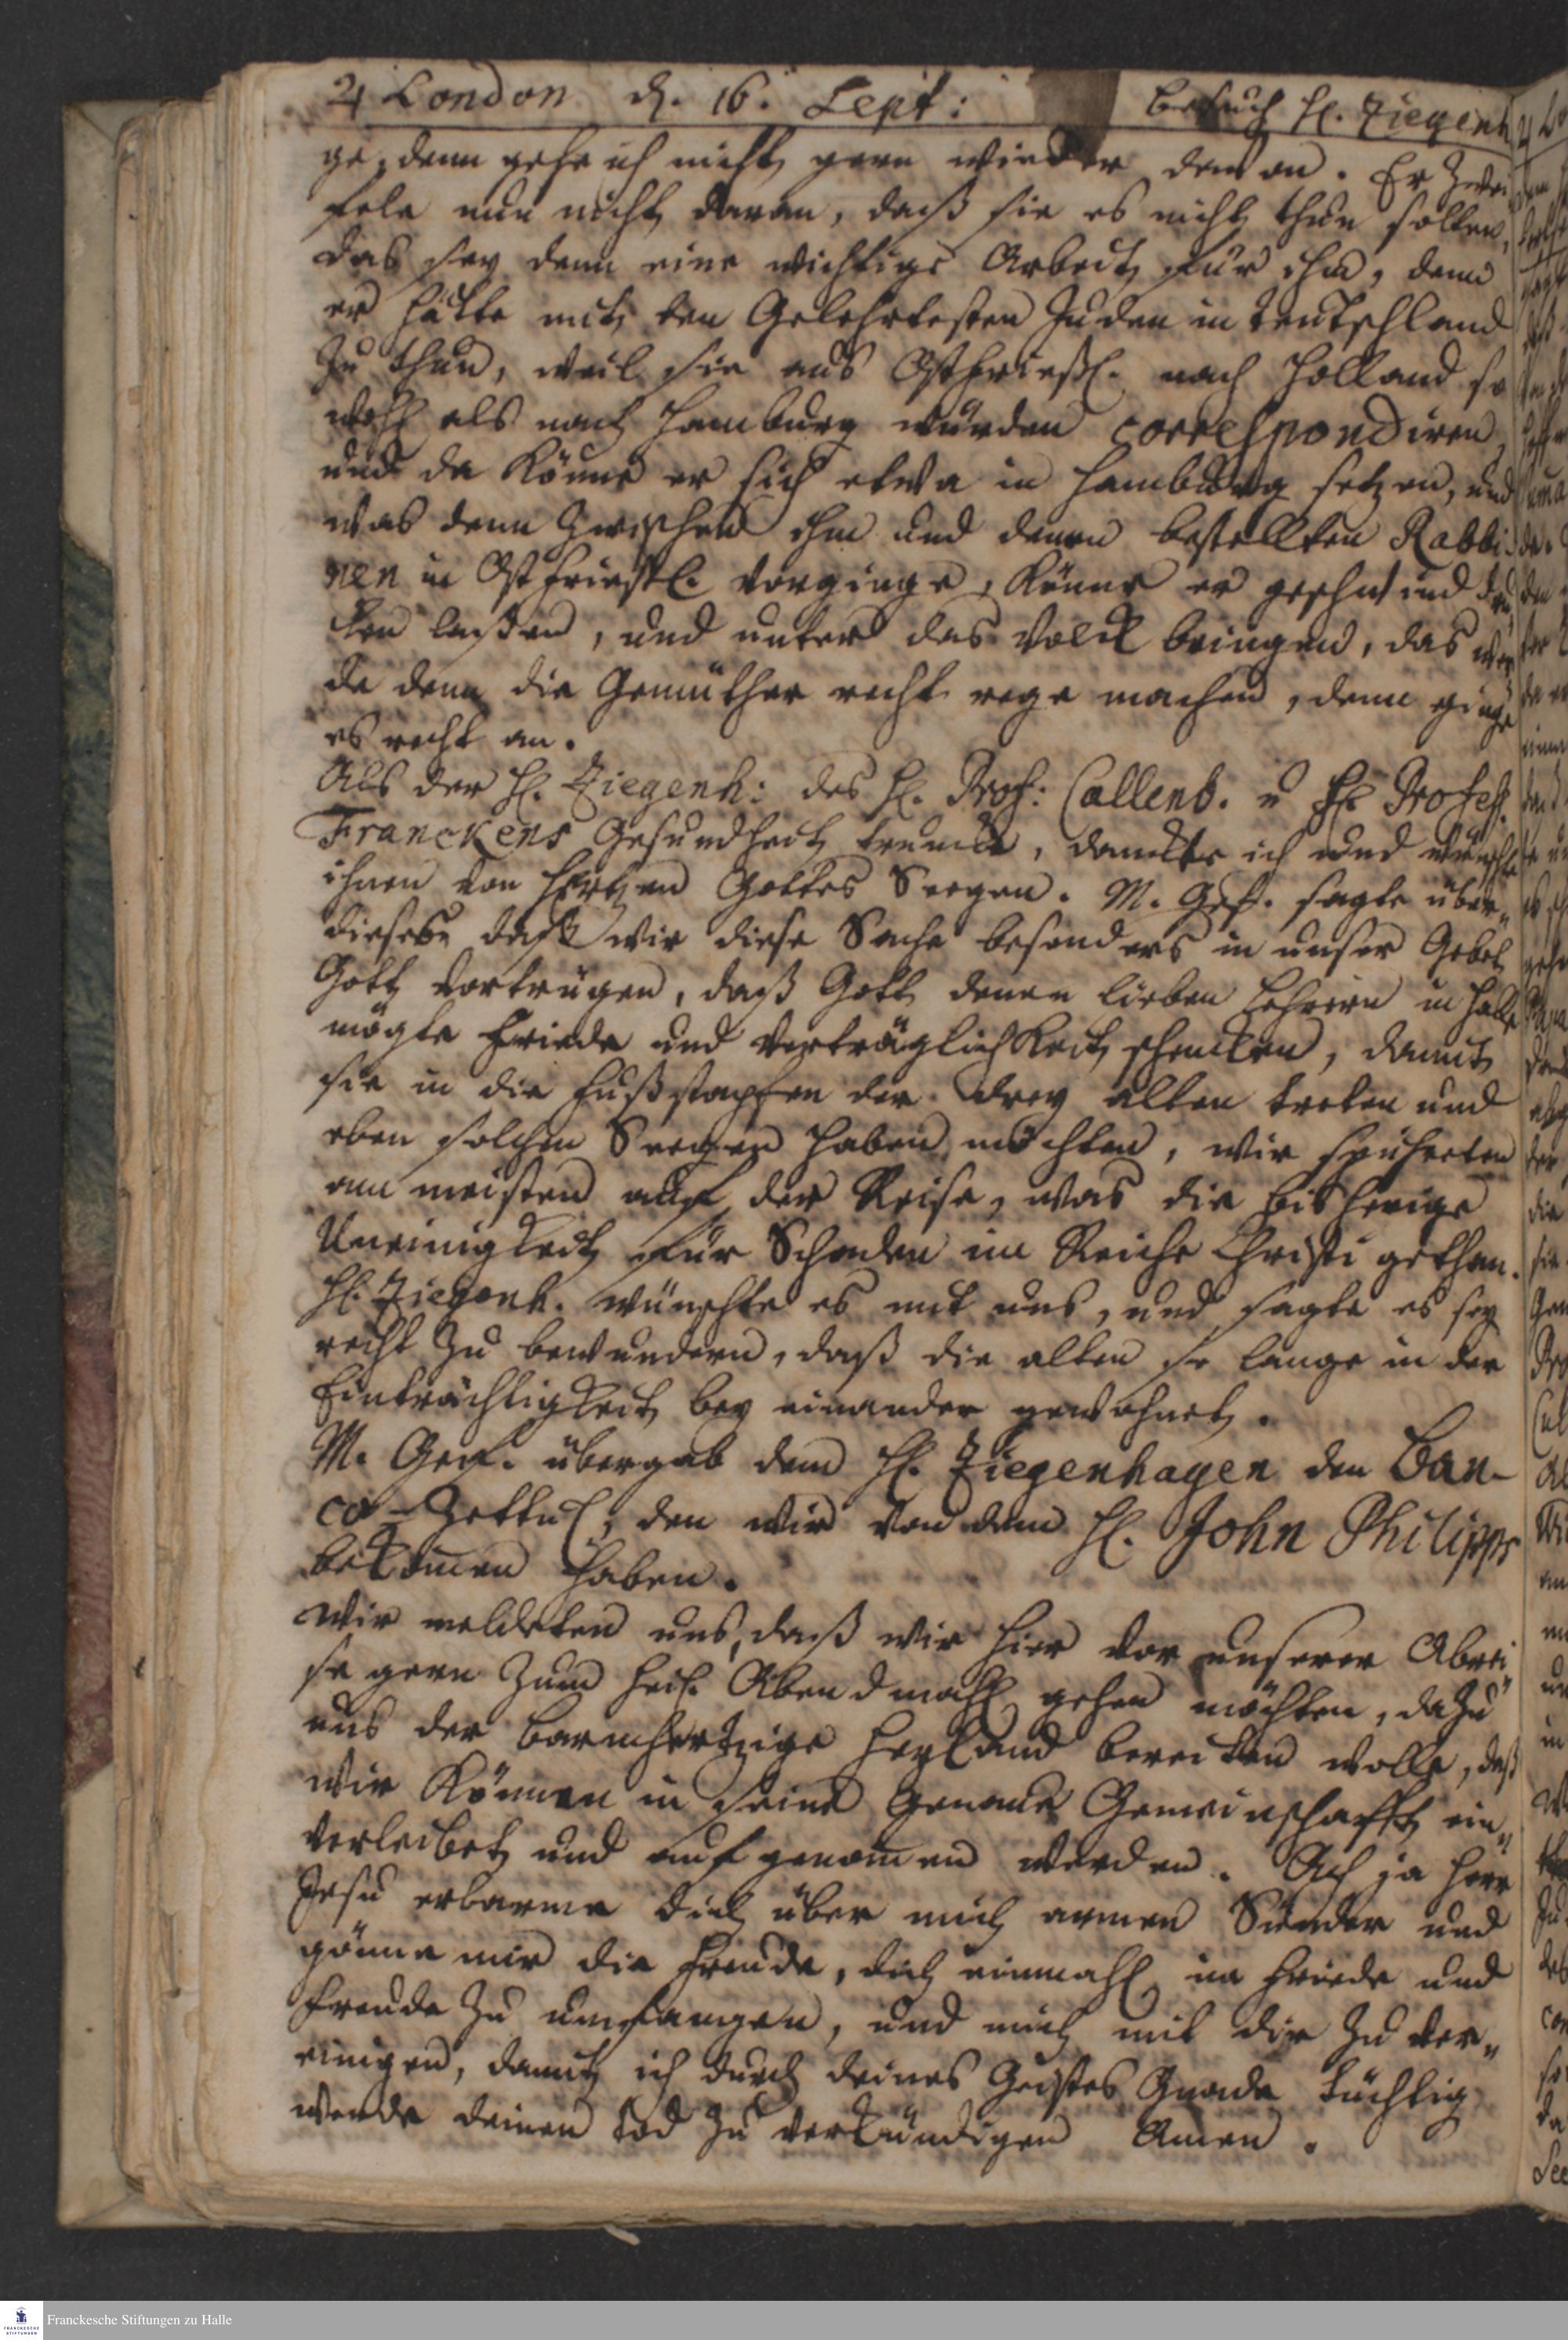 ♃ London d. 16. Sept: besuch H. Ziegenh
ge, denn gehe ich nicht gern wieder davon. Er Zwei
fele nun nicht daran, daß sie es nicht thun solten,
das sey denn eine wichtige Arbeit für ihn, denn
er hätte mit den Gelehrtesten Juden in Teutschland
zu thun, weil sie aus Ostfrießl. nach Holland so
wohl als nach Hamburg würden correspondiren,
und da könne er sich etwa in Hamburg setzen, und
was denn zwischen ihm und denen bestellten Rabbi:
nen in Ostfriesl. vorginge, könne er geschwind dru
cken laßen, und unter das Volck bringen, das wer
de denn die Gemüther recht rege machen, denn ginge
es recht an.
Als der H. Ziegenh: des H. Prof: Callenb. u H. Profess.
Franckens Gesundheit trunck, danckte ich und wünschte
ihnen von Hertzen Gottes Seegen. M. Gef. sagte über„
dieses daß wir diese Sache besonders in unser Gebet
Gott vortrügen, daß Gott denen lieben Lehrern in Halle
mögte Friede und Verträglichkeit schencken, damit
sie in die Fußstapfen der drey alten treten und
eben solchen Seegen haben möchten, wir spühreten
am meisten auf der Reise, was die bißherige
Uneinigkeit für Schaden im Reiche Christi gethan.
H. Ziegenh. wünschte es mit uns, und sagte es sey
recht zu bewundern, daß die alten so lange in der
Einträchtigkeit bey einander gewohnet.
M. Gef. übergab dem H. Ziegenhagen den Ban-
co-Zettul, den wir von dem H. John Philipps
bekom̄en haben.
Wir meldeten uns, daß wir hier vor unserer Abrei„
se gern zum heil. Abendmahl gehen möchten, dazu
uns der barmhertzige Heyland bereiten wolle, daß
wir können in seine genaue Gemeinschafft ein„
verleibet und aufgenom̄en werden. Ach ja Herr
Jesu erbarme dich über mich armen Sünder und
gönne mir die Freude, dich einmahl in Friede und
Freude zu umfangen, und mich mit dir zu ver„
einigen, damit ich durch deines Geistes Gnade tüchtig
werde deinen Tod zu verkündigen Amen.
Franckesche Stiftungen zu Halle